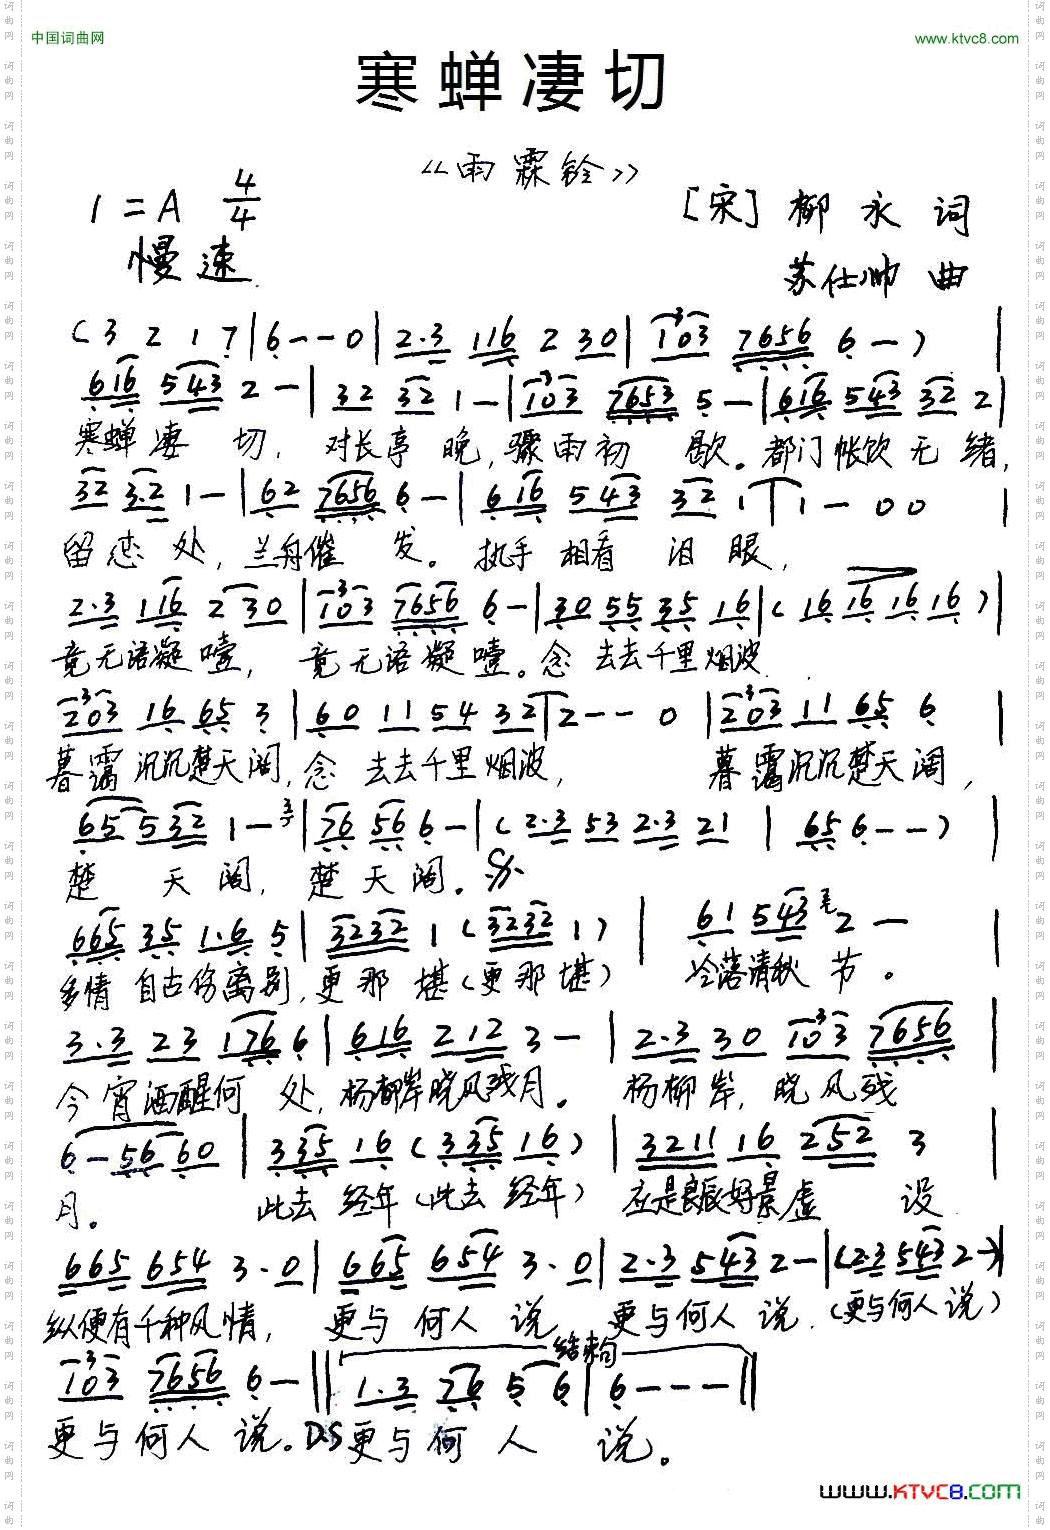 中国词曲网
www.ktvc8.com
寒蝉凄切
《雨霖铃》
1=A 4/4
[宋] 柳永 词
慢速
苏仕帅 曲
(3 2 1 7|6--0|2·3 116 2 30|103 7656 6-)|
616 543 2-|32 32 1-|103 7653 5-|616 543 32 2|
寒蝉凄切,对长亭晚,骤雨初歇。都门帐饮无绪,
32 3·2 1-|62 7656 6-|616 543 32 1|1-00|
留恋处,兰舟催发。执手相看泪眼,
2·3 116 2 30|103 7656 6-|30 55 35 16|(16 16 16 16)|
竟无语凝噎,竟无语凝噎。念去去千里烟波
203 16 65 3|60 11 54 32|2--0|203 11 65 6|
暮霭沉沉楚天阔,念去去千里烟波,暮霭沉沉楚天阔,
65 532 1-|76 56 6-|(2·3 53 2·3 21|65 6--)|
楚天阔,楚天阔。
665 35 1·6 5|3232 1(3232 1)|61 543 2-|
多情自古伤离别,更那堪(更那堪)冷落清秋节。
3·3 23 176 6|616 212 3-|2·3 30 103 7656|
今宵酒醒何处,杨柳岸晓风残月。杨柳岸,晓风残
6-56 60|335 16(335 16)|3211 16 252 3|
月。此去经年(此去经年)应是良辰好景虚设
665 654 3·0|665 654 3·0|2·3 543 2-|(2·3 543 2-)|
纵便有千种风情,更与何人说 更与何人说.(更与何人说)
结束句
103 7656 6-‖1·3 76 5 6|6---‖
更与何人说。D.S更与何人说。
WWW.KTVC8.COM